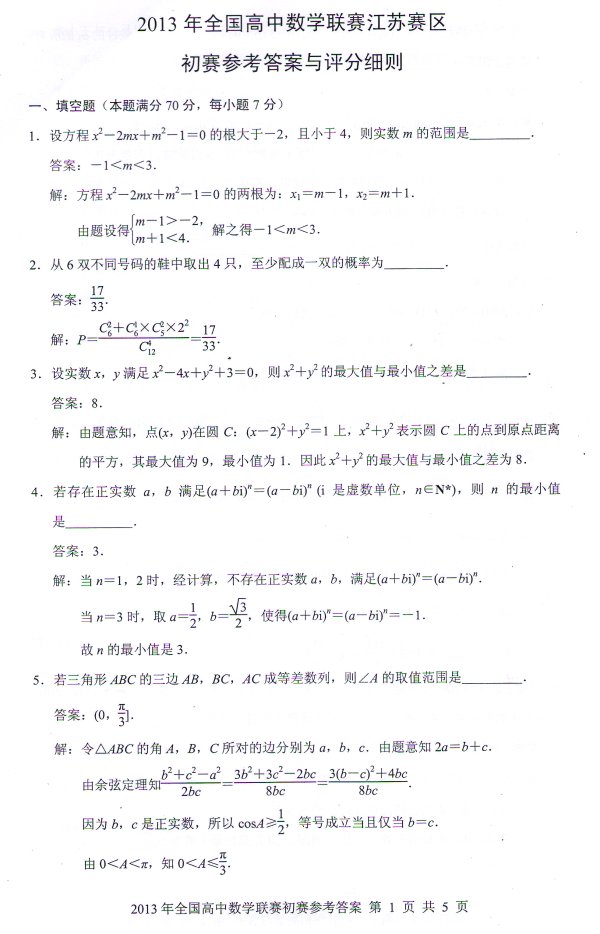 2013 年全国高中数学联赛江苏赛区
初赛参考答案与评分细则
一、填空题（本题满分 70 分，每小题 7 分）
1．设方程 x²－2mx＋m²－1＝0 的根大于－2，且小于 4，则实数 m 的范围是________．
答案：－1＜m＜3．
解：方程 x²－2mx＋m²－1＝0 的两根为：x₁＝m－1，x₂＝m＋1．
由题设得{m－1＞－2，m＋1＜4． 解之得－1＜m＜3．
2．从 6 双不同号码的鞋中取出 4 只，至少配成一双的概率为________．
答案：17/33．
解：P＝(C₆²＋C₆¹×C₅²×2²)/C₁₂⁴＝17/33．
3．设实数 x，y 满足 x²－4x＋y²＋3＝0，则 x²＋y² 的最大值与最小值之差是________．
答案：8．
解：由题意知，点(x，y)在圆 C：(x－2)²＋y²＝1 上，x²＋y² 表示圆 C 上的点到原点距离
的平方，其最大值为 9，最小值为 1．因此 x²＋y² 的最大值与最小值之差为 8．
4．若存在正实数 a，b 满足(a＋bi)ⁿ＝(a－bi)ⁿ (i 是虚数单位，n∈N*)，则 n 的最小值
是________．
答案：3．
解：当 n＝1，2 时，经计算，不存在正实数 a，b，满足(a＋bi)ⁿ＝(a－bi)ⁿ．
当 n＝3 时，取 a＝1/2，b＝√3/2，使得(a＋bi)ⁿ＝(a－bi)ⁿ＝－1．
故 n 的最小值是 3．
5．若三角形 ABC 的三边 AB，BC，AC 成等差数列，则∠A 的取值范围是________．
答案：(0，π/3]．
解：令△ABC 的角 A，B，C 所对的边分别为 a，b，c．由题意知 2a＝b＋c．
由余弦定理知(b²＋c²－a²)/2bc＝(3b²＋3c²－2bc)/8bc＝(3(b－c)²＋4bc)/8bc．
因为 b，c 是正实数，所以 cosA≥1/2，等号成立当且仅当 b＝c．
由 0＜A＜π，知 0＜A≤π/3．
2013 年全国高中数学联赛初赛参考答案 第 1 页 共 5 页